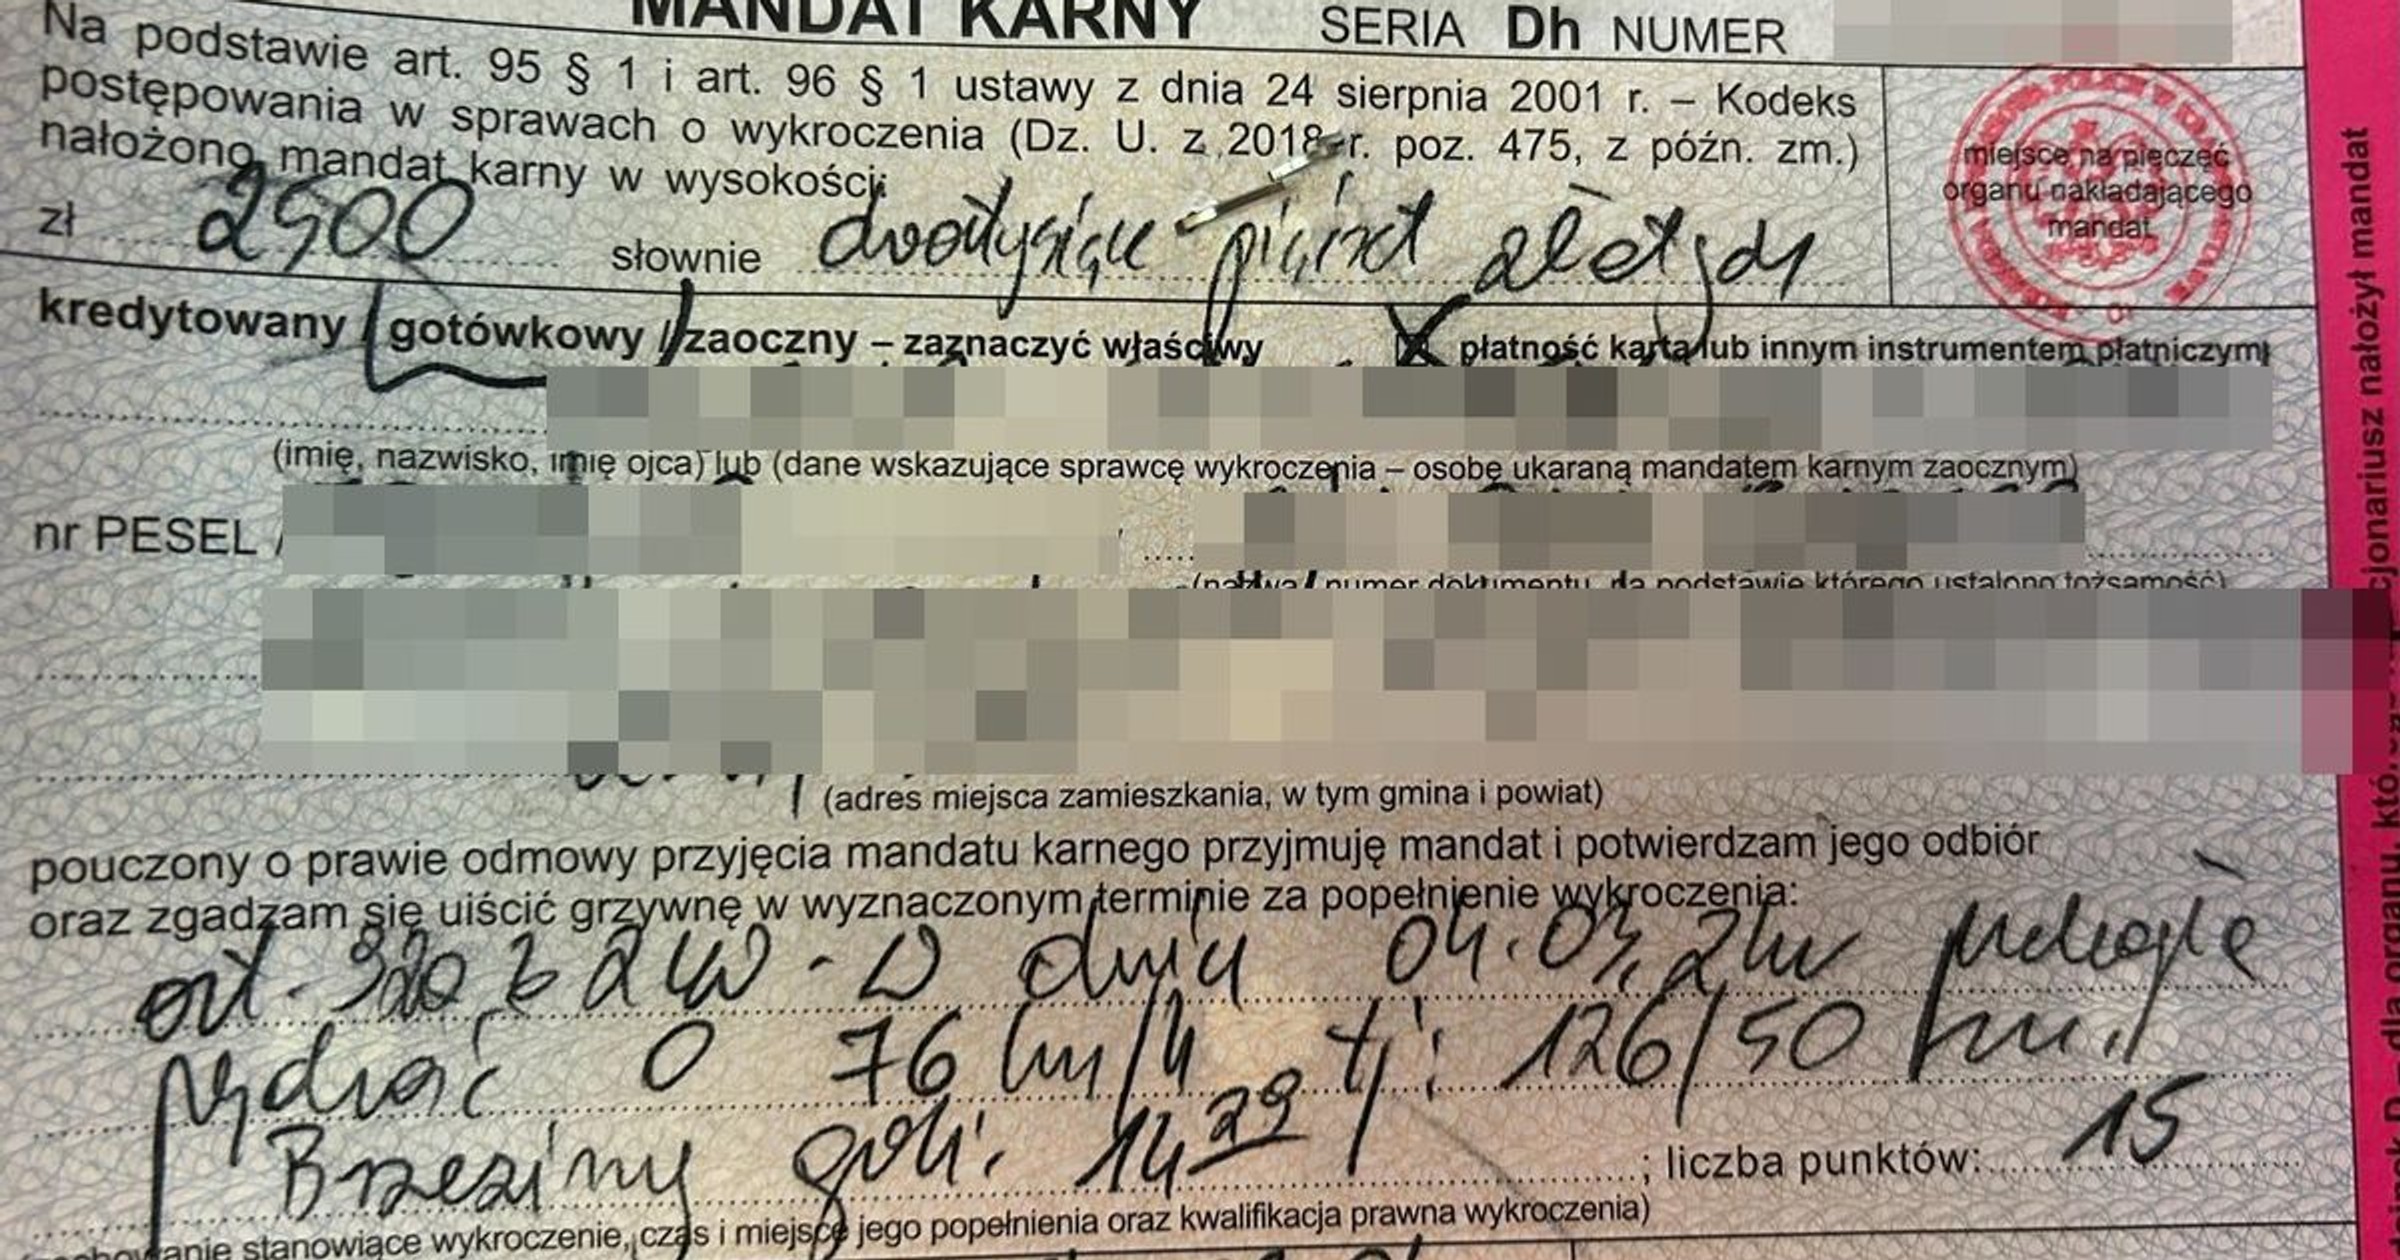 MANDAT KARNY SERIA Dh NUMER
Na podstawie art. 95 § 1 i art. 96 § 1 ustawy z dnia 24 sierpnia 2001 r. – Kodeks
postępowania w sprawach o wykroczenia (Dz. U. z 2018 r. poz. 475, z późn. zm.)
nałożono mandat karny w wysokości:
miejsce na pieczęć
organu nakładającego
mandat
zł 2500 słownie dwatysiące pięćset złotych
kredytowany / gotówkowy / zaoczny – zaznaczyć właściwy płatność kartą lub innym instrumentem płatniczym
(imię, nazwisko, imię ojca) lub (dane wskazujące sprawcę wykroczenia – osobę ukaraną mandatem karnym zaocznym)
nr PESEL /
(nazwa i numer dokumentu, na podstawie którego ustalono tożsamość)
(adres miejsca zamieszkania, w tym gmina i powiat)
pouczony o prawie odmowy przyjęcia mandatu karnego przyjmuję mandat i potwierdzam jego odbiór
oraz zgadzam się uiścić grzywnę w wyznaczonym terminie za popełnienie wykroczenia:
art. 92a § 2 kw - w dniu 04.03.24r
prędkość o 76 km/h tj: 126/50
Brzeziny godz. 14 29 ; liczba punktów: 15
stanowiące wykroczenie, czas i miejsce jego popełnienia oraz kwalifikacja prawna wykroczenia)
nałożył mandat